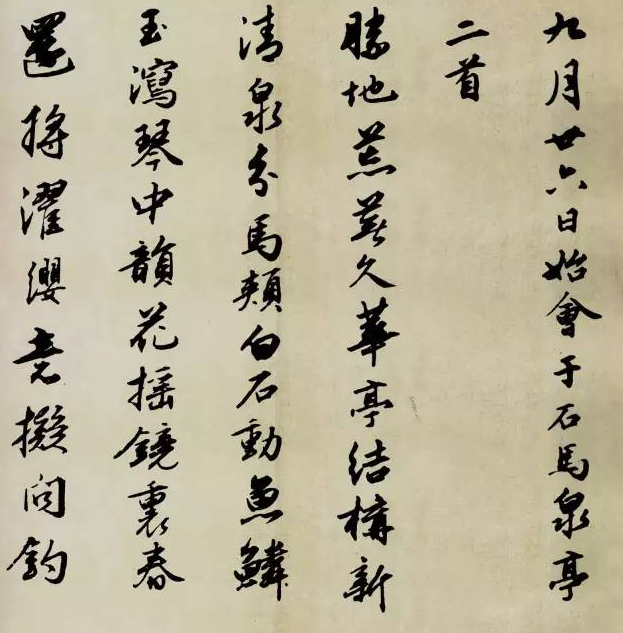 九月廿六日始會于石馬泉亭
二首
勝地荒蕪久華亭結構新
清泉分馬頰白石動魚鱗
玉瀉琴中韻花摇鏡裏春
還將濯纓意擬問釣